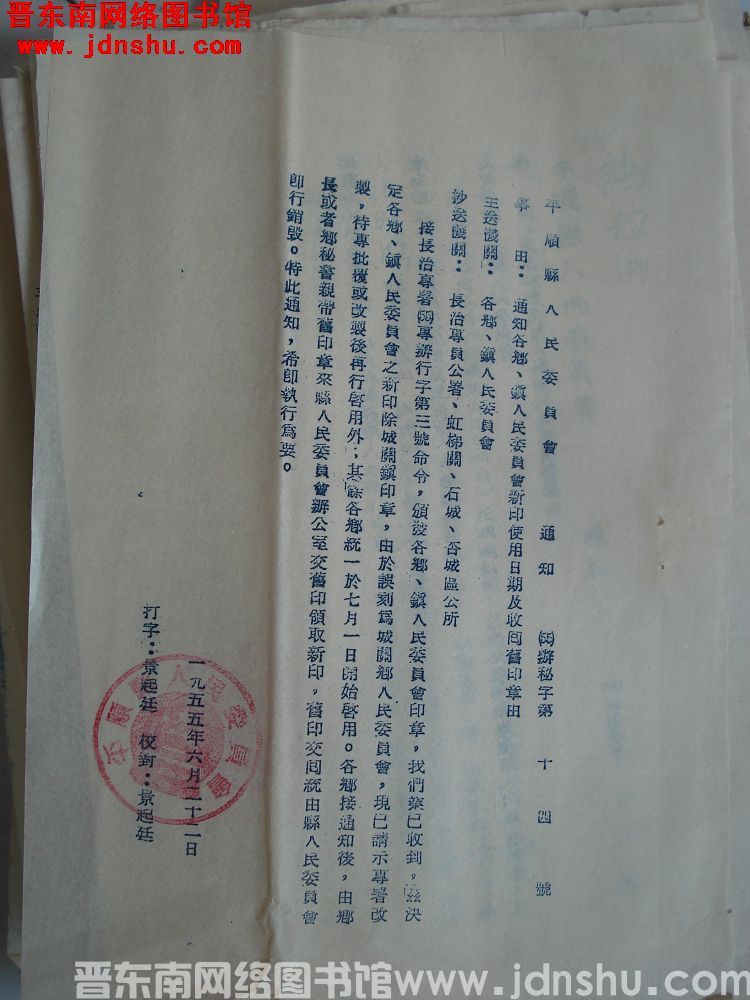 晋东南网络图书馆
www.jdnshu.com
平順縣人民委員會 通知 (55)辦秘字第十四號
事由：通知各鄉、鎮人民委員會新印使用日期及收囘舊印章由
主送機關：各鄉、鎮人民委員會
鈔送機關：長治專員公署、虹梯關、石城、杳城區公所
接長治專署(55)專辦行字第三號命令，頒發各鄉、鎮人民委員會印章，我們業已收到，茲決
定各鄉、鎮人民委員會之新印除城關鎮印章，由於誤刻爲城關鄉人民委員會，現已請示專署改
製，待專批復或改製後再行啓用外；其餘各鄉統一於七月一日開始啓用。各鄉接通知後，由鄉
長或者鄉秘書親帶舊印章來縣人民委員會辦公室交舊印領取新印，舊印交囘統由縣人民委員會
卽行銷毀。特此通知，希卽執行爲要。
一九五五年六月二十二日
平順縣人民委員會
打字：景起廷 校對：景起廷
晋东南网络图书馆www.jdnshu.com